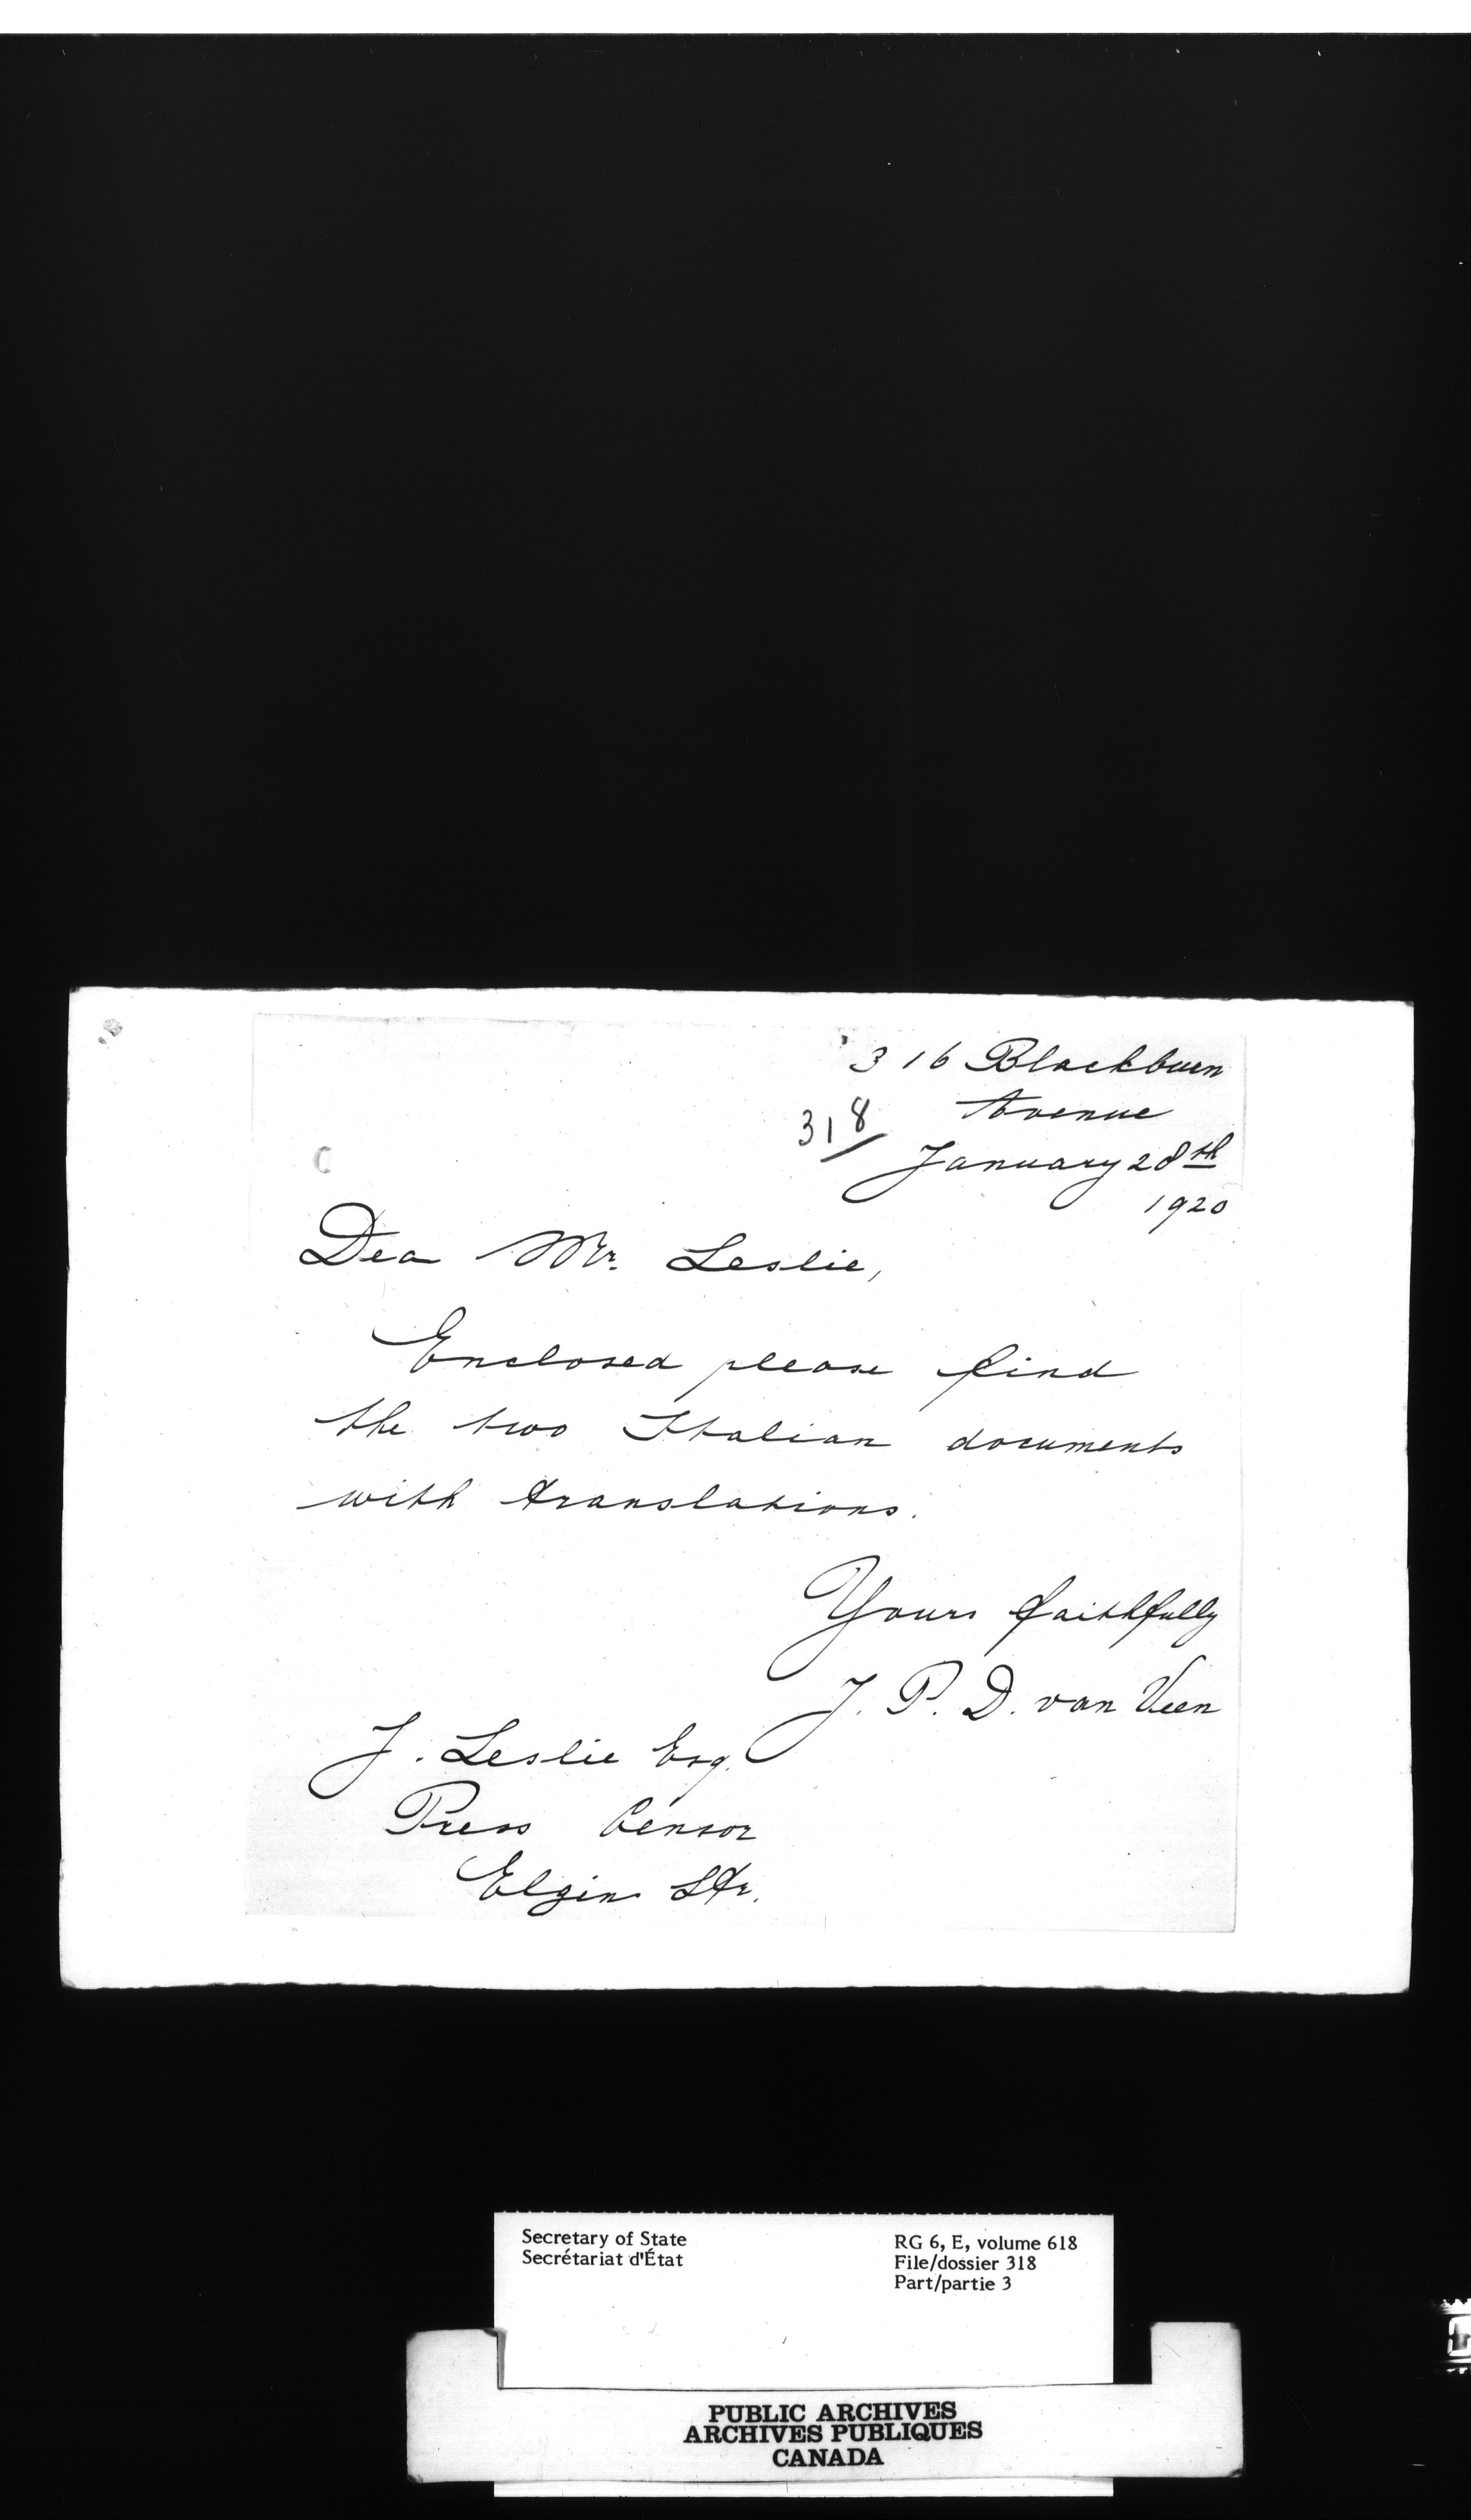 316 Blackburn
Avenue
318
January 28th
1920
C
Dea Mr. Leslie,
Enclosed please find
the two Italian documents
with translations.
Yours faithfully
J. P. D. van Veen
J. Leslie Esq.
Press Censor
Elgin Str.
Secretary of State
Secrétariat d'État
RG 6, E, volume 618
File/dossier 318
Part/partie 3
PUBLIC ARCHIVES
ARCHIVES PUBLIQUES
CANADA